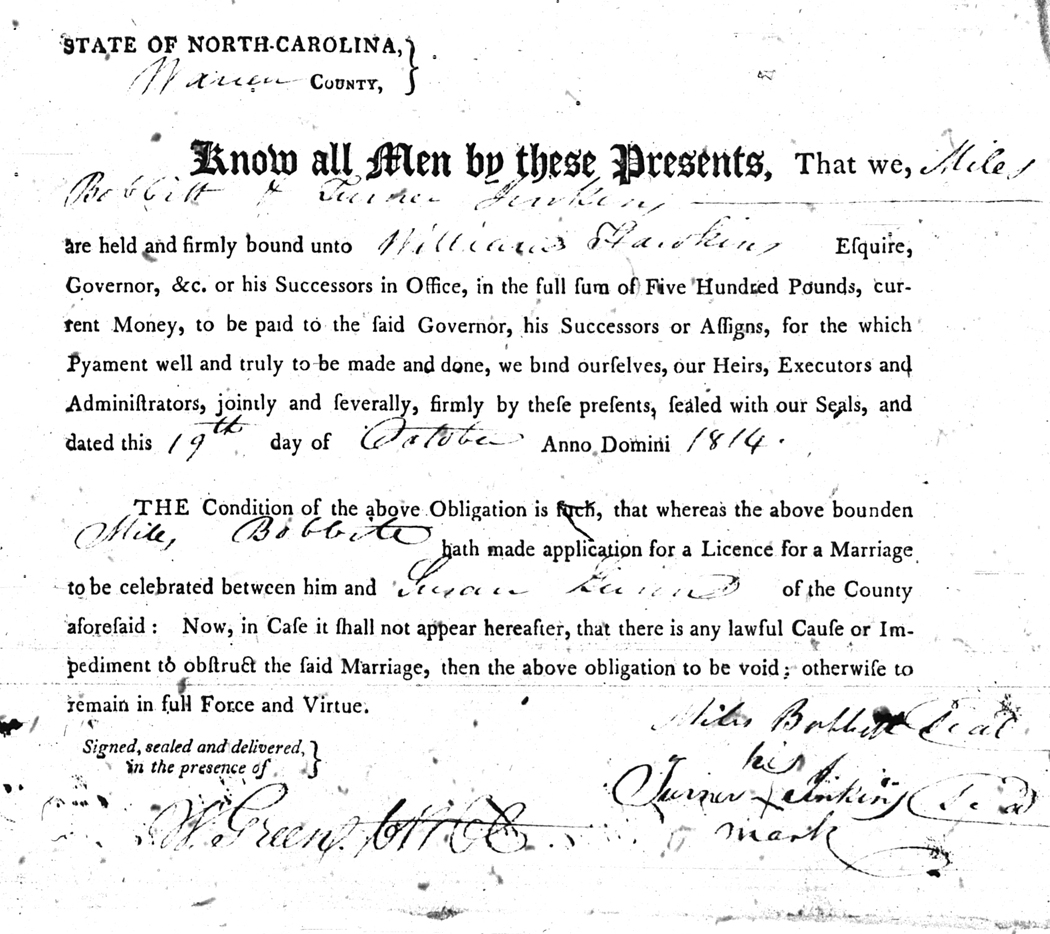 STATE OF NORTH-CAROLINA,
Warren COUNTY,
Know all Men by theſe Preſents, That we, Miles
Bobbitt & Turner Jenkins
are held and firmly bound unto William Hawkins Eſquire,
Governor, &c. or his Successors in Office, in the full ſum of Five Hundred Pounds, cur-
rent Money, to be paid to the ſaid Governor, his Successors or Aſſigns, for the which
Pyament well and truly to be made and done, we bind ourſelves, our Heirs, Executors and
Adminiſtrators, jointly and ſeverally, firmly by theſe preſents, ſealed with our Seals, and
dated this 19th day of October Anno Domini 1814.
THE Condition of the above Obligation is ſuch, that whereas the above bounden
Miles Bobbitt hath made application for a Licence for a Marriage
to be celebrated between him and Susan of the County
aforeſaid: Now, in Caſe it ſhall not appear hereafter, that there is any lawful Cauſe or Im-
pediment to obſtruct the ſaid Marriage, then the above obligation to be void; otherwiſe to
remain in full Force and Virtue.
Miles Bobbitt Seal
Signed, sealed and delivered,
in the presence of
his
Turner Jenkins Seal
mark
W. Green